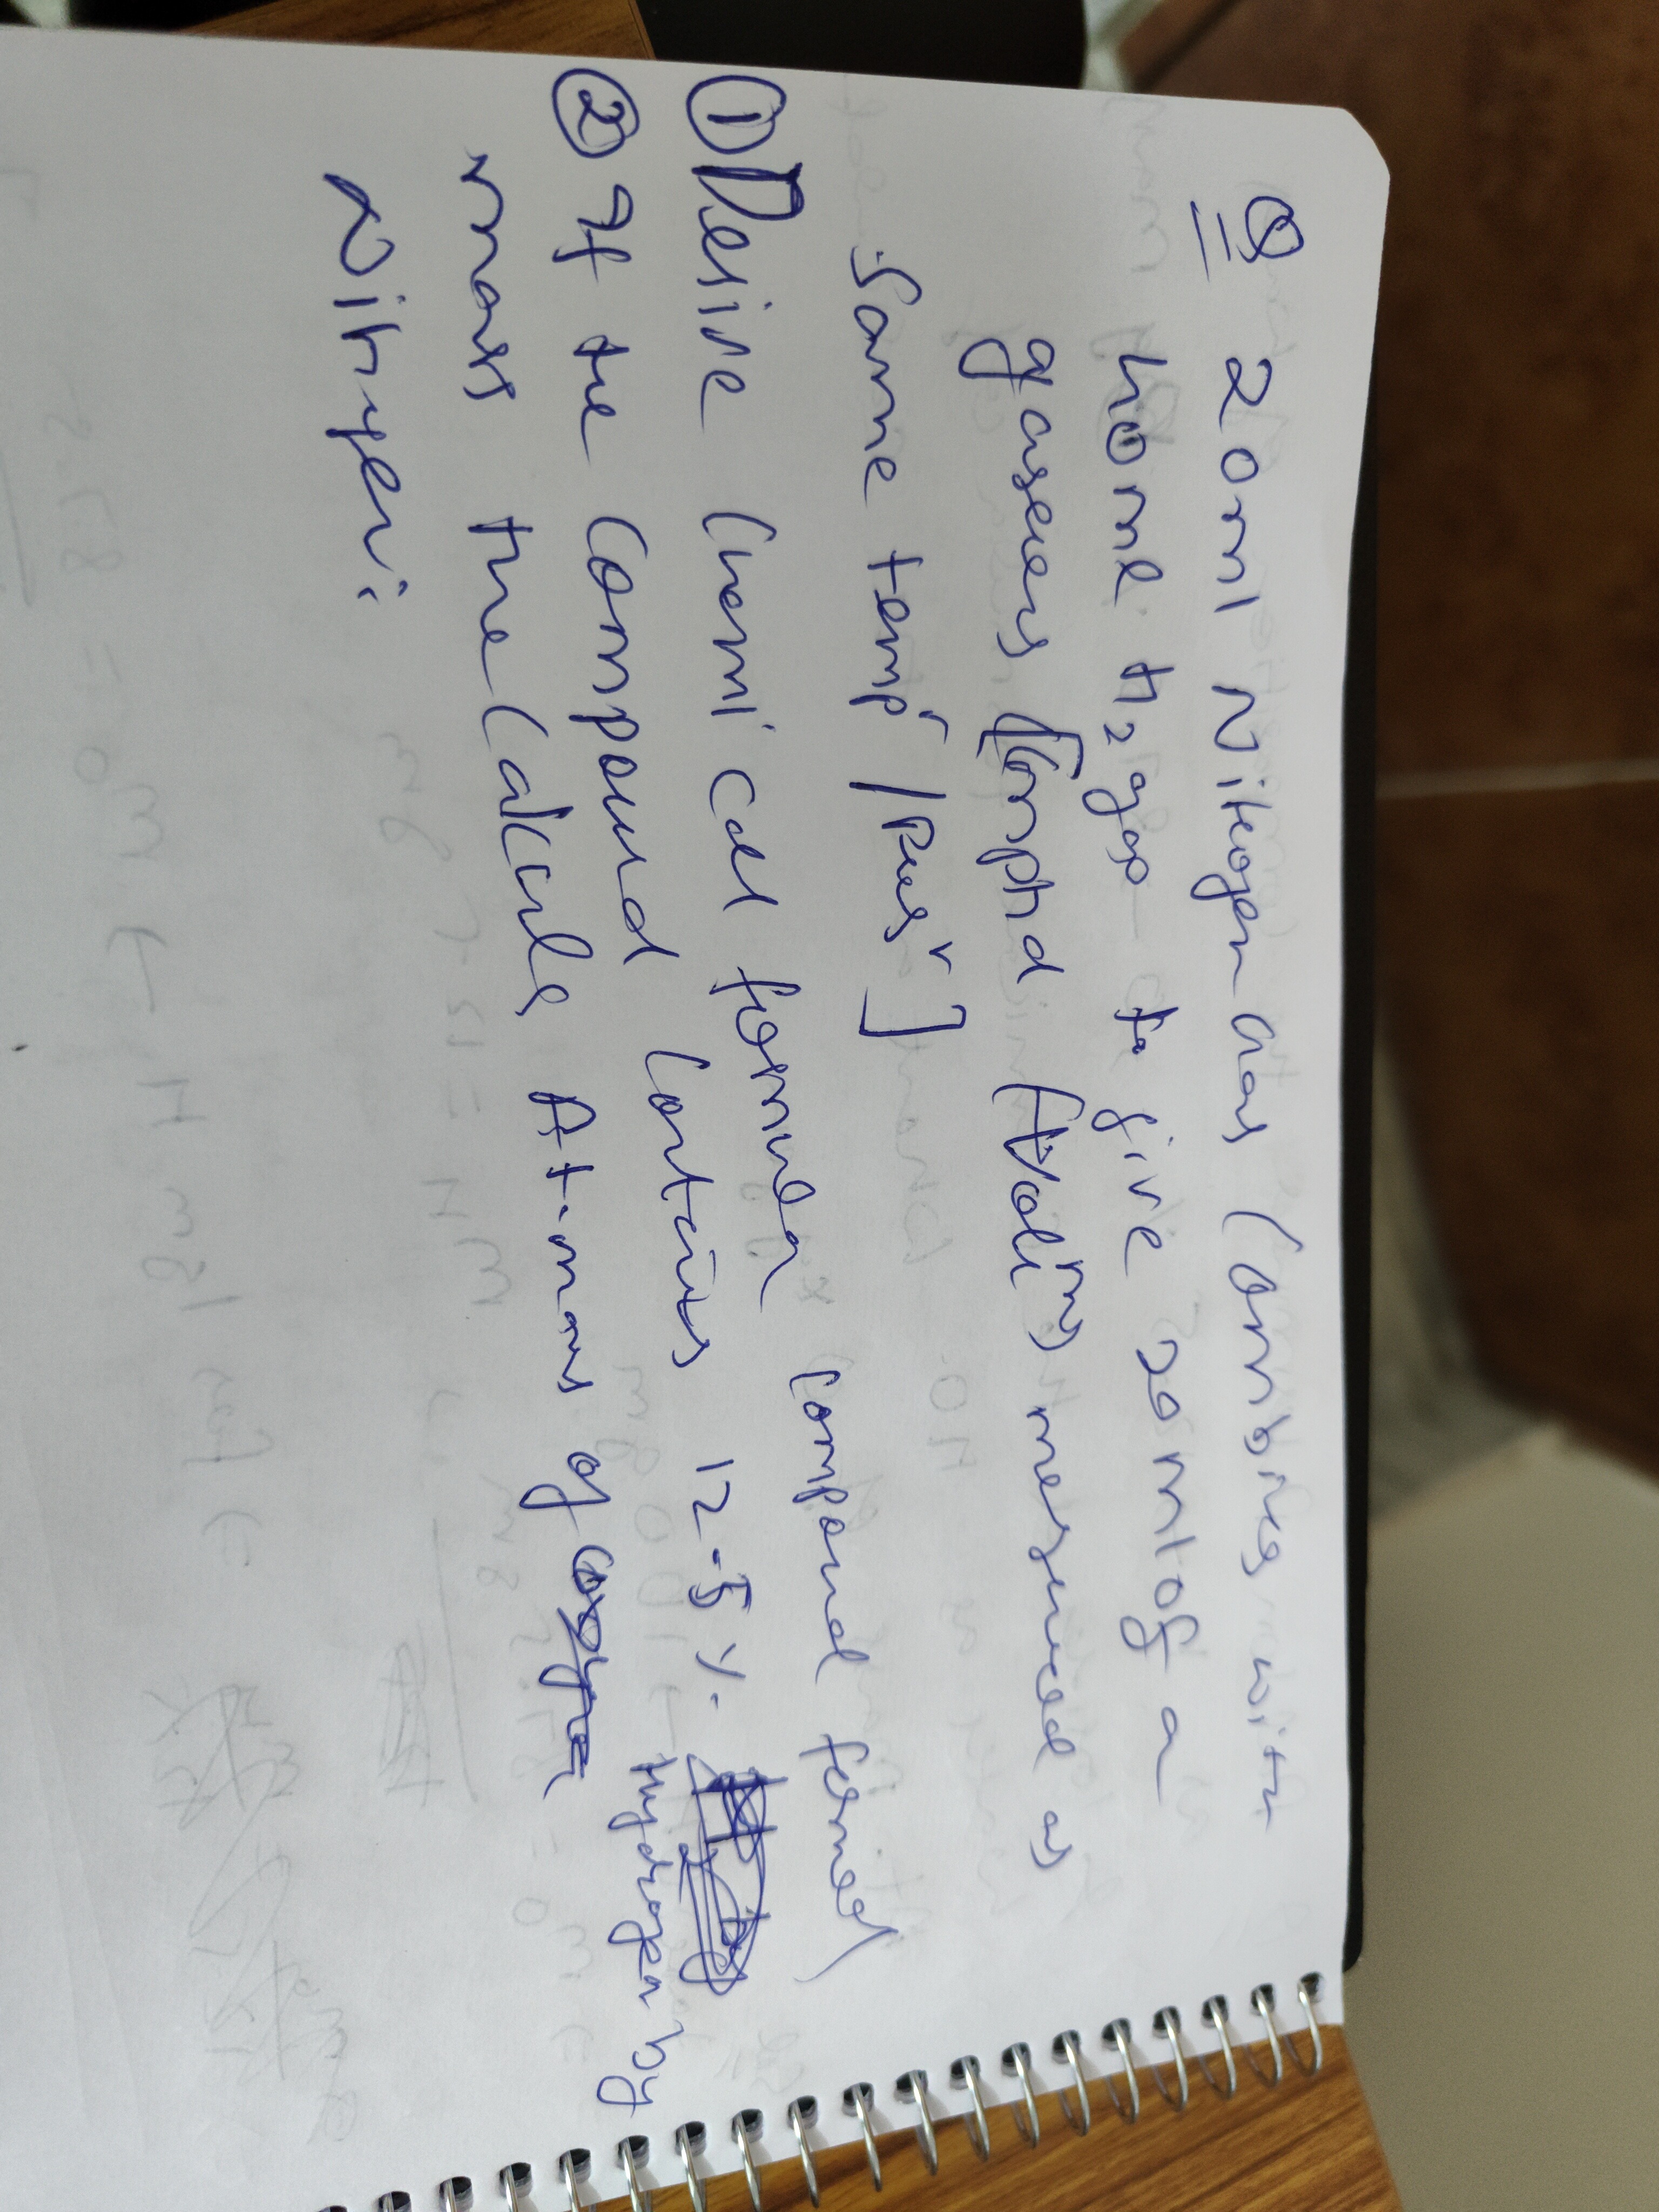 Q 20ml Nitrogen gas Combines with
40ml H2 gas to give 20ml of a
gaseous Compd (Volms measured as
Same tempr / Presr]
① Derive Chemical formula compound formed
② If the Compound Contains 12.5 %. Hydrogen by
mass the Calcule At. mass of
Nitrogen.